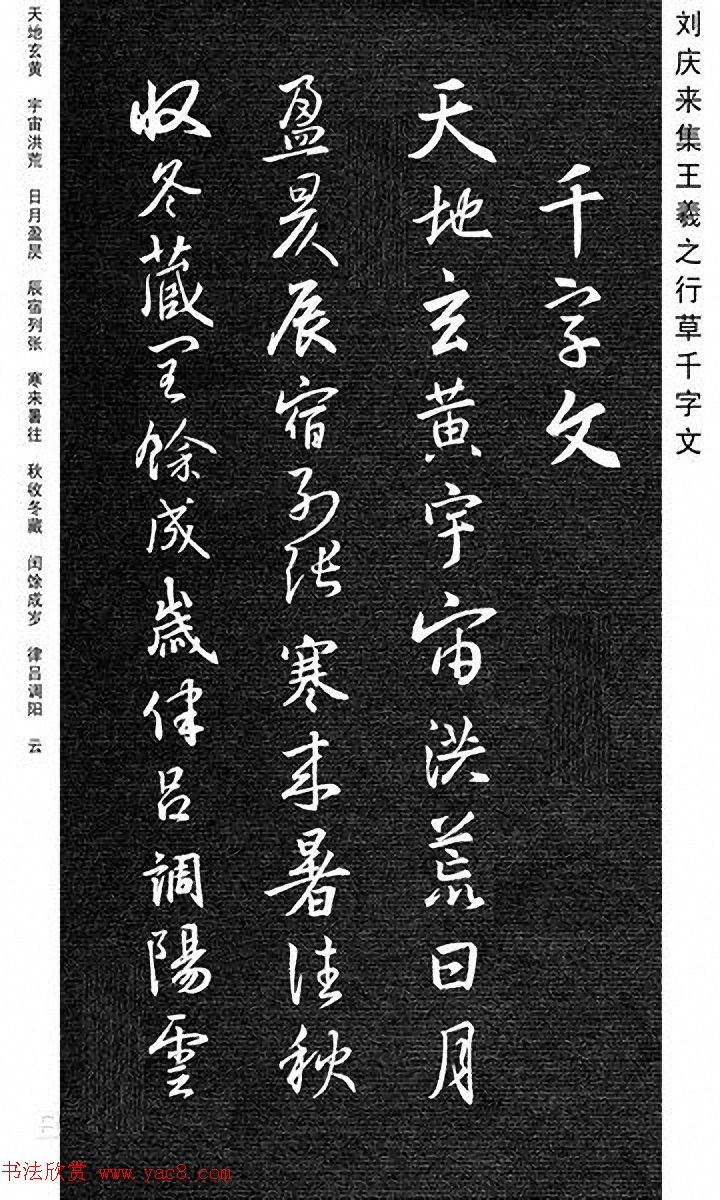 刘庆来集王羲之行草千字文
千字文
天地玄黄宇宙洪荒日月
盈昃辰宿列张寒来暑往秋
收冬藏闰餘成歲律吕調陽雲
天地玄黄 宇宙洪荒 日月盈昃 辰宿列张 寒来暑往 秋收冬藏 闰馀成岁 律吕调阳 云
书法欣赏 www.yac8.com